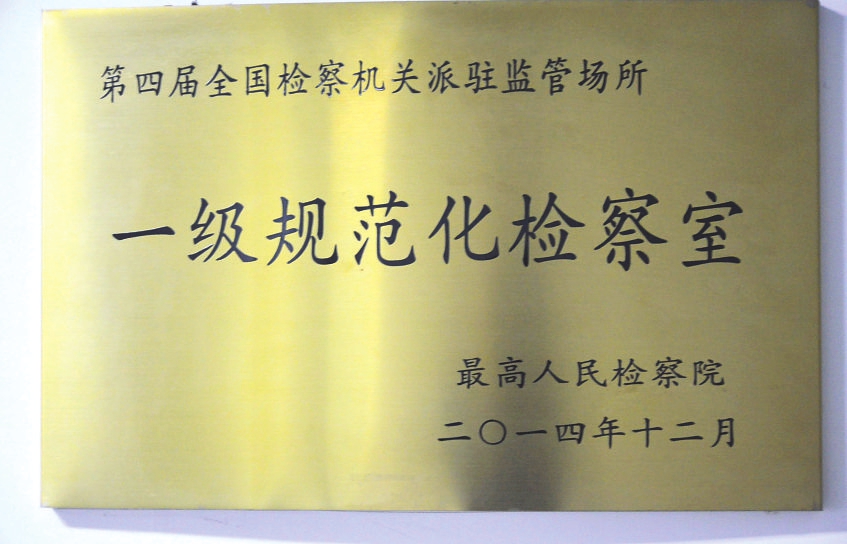 第四届全国检察机关派驻监管场所
一级规范化检察室
最高人民检察院
二〇一四年十二月